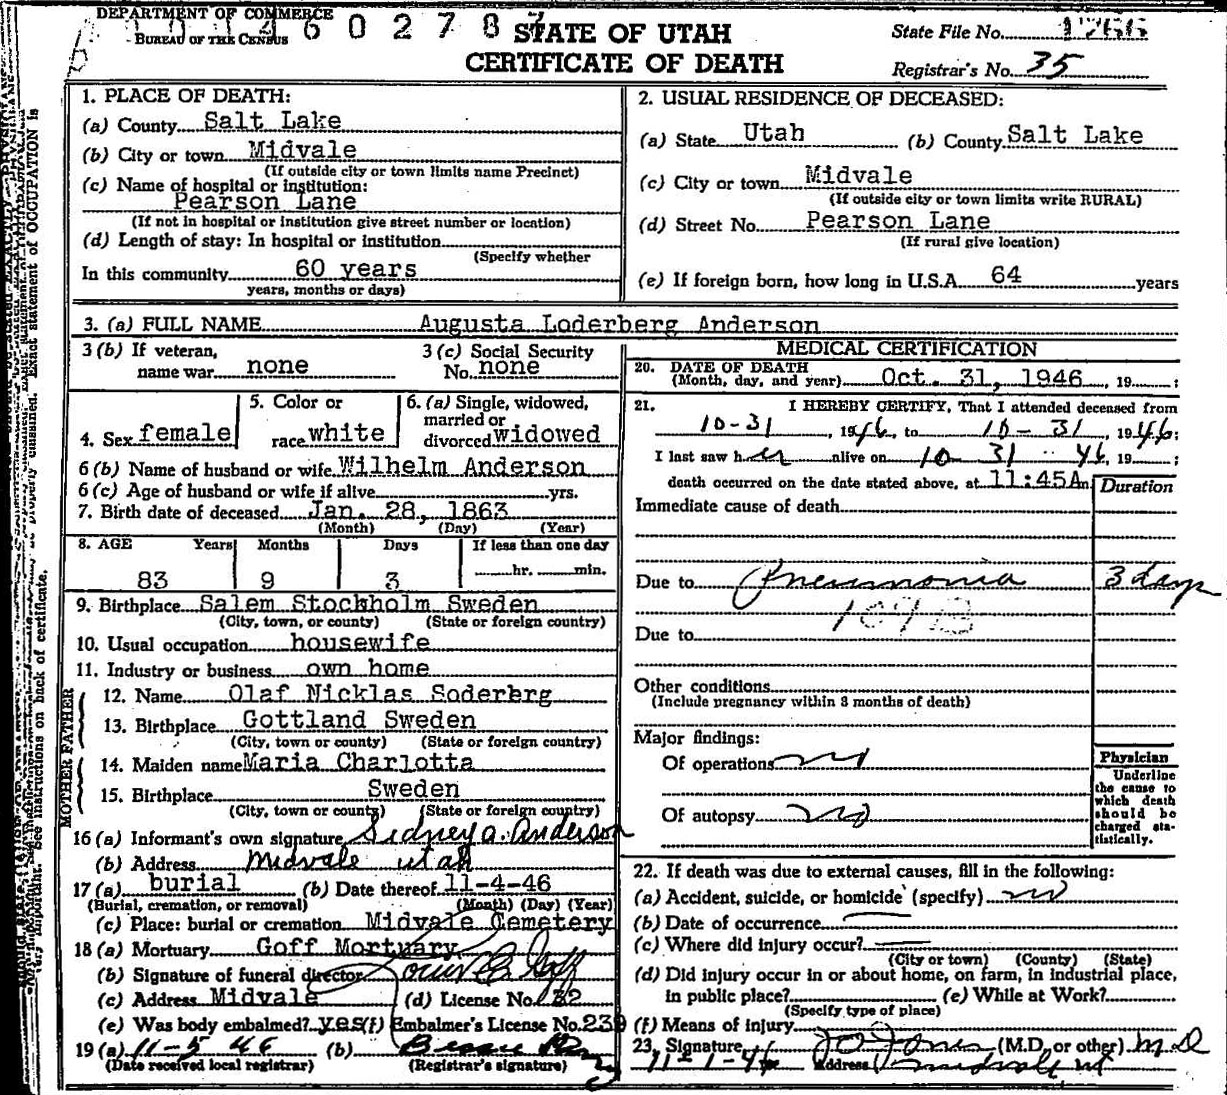 DEPARTMENT OF COMMERCE
BUREAU OF THE CENSUS
6 0 2 7 8
STATE OF UTAH
CERTIFICATE OF DEATH
State File No. 1766
Registrar's No. 35
1. PLACE OF DEATH:
(a) County Salt Lake
(b) City or town Midvale
(If outside city or town limits name Precinct)
(c) Name of hospital or institution:
Pearson Lane
(If not in hospital or institution give street number or location)
(d) Length of stay: In hospital or institution
(Specify whether
In this community 60 years
years, months or days)
2. USUAL RESIDENCE OF DECEASED:
(a) State Utah (b) County Salt Lake
(c) City or town Midvale
(If outside city or town limits write RURAL)
(d) Street No. Pearson Lane
(If rural give location)
(e) If foreign born, how long in U.S.A. 64 years
3. (a) FULL NAME Augusta Loderberg Anderson
3 (b) If veteran,
name war none
3 (c) Social Security
No. none
4. Sex female
5. Color or
race white
6. (a) Single, widowed,
married or
divorced widowed
6 (b) Name of husband or wife Wilhelm Anderson
6 (c) Age of husband or wife if alive yrs.
7. Birth date of deceased Jan. 28, 1863
(Month) (Day) (Year)
8. AGE Years Months Days If less than one day
83 9 3 hr. min.
9. Birthplace Salem Stockholm Sweden
(City, town, or county) (State or foreign country)
10. Usual occupation housewife
11. Industry or business own home
MOTHER FATHER
12. Name Olaf Nicklas Soderbrg
13. Birthplace Gottland Sweden
(City, town or county) (State or foreign country)
14. Maiden name Maria Charlotta
15. Birthplace Sweden
(City, town or county) (State or foreign country)
16 (a) Informant's own signature Sidney A. Anderson
(b) Address Midvale Utah
17 (a) burial (b) Date thereof 11-4-46
(Burial, cremation, or removal) (Month) (Day) (Year)
(c) Place: burial or cremation Midvale Cemetery
18 (a) Mortuary Goff Mortuary
(b) Signature of funeral director Goff
(c) Address Midvale (d) License No. 132
(e) Was body embalmed? yes (f) Embalmer's License No. 239
19 (a) 11-5 46 (b) Bessie
(Date received local registrar) (Registrar's signature)
MEDICAL CERTIFICATION
20. DATE OF DEATH
(Month, day, and year) Oct. 31, 1946, 19 ;
21. I HEREBY CERTIFY, That I attended deceased from
10-31, 1946, to 10-31, 1946;
I last saw her alive on 10 31 46, 19 ;
death occurred on the date stated above, at 11:45A m.
Duration
Immediate cause of death
Due to Pneumonia 3 days
107B
Due to
Other conditions
(Include pregnancy within 3 months of death)
Major findings:
Of operations no
Of autopsy no
Physician
Underline
the cause to
which death
should be
charged sta-
tistically.
22. If death was due to external causes, fill in the following:
(a) Accident, suicide, or homicide (specify) no
(b) Date of occurrence
(c) Where did injury occur?
(City or town) (County) (State)
(d) Did injury occur in or about home, on farm, in industrial place,
in public place? (e) While at Work?
(Specify type of place)
(f) Means of injury
23. Signature Jones (M.D. or other) M D
11-1-46 Address Midvale ut
OCCUPATION is
Exact statement of
properly classified.
See instructions on back of certificate.